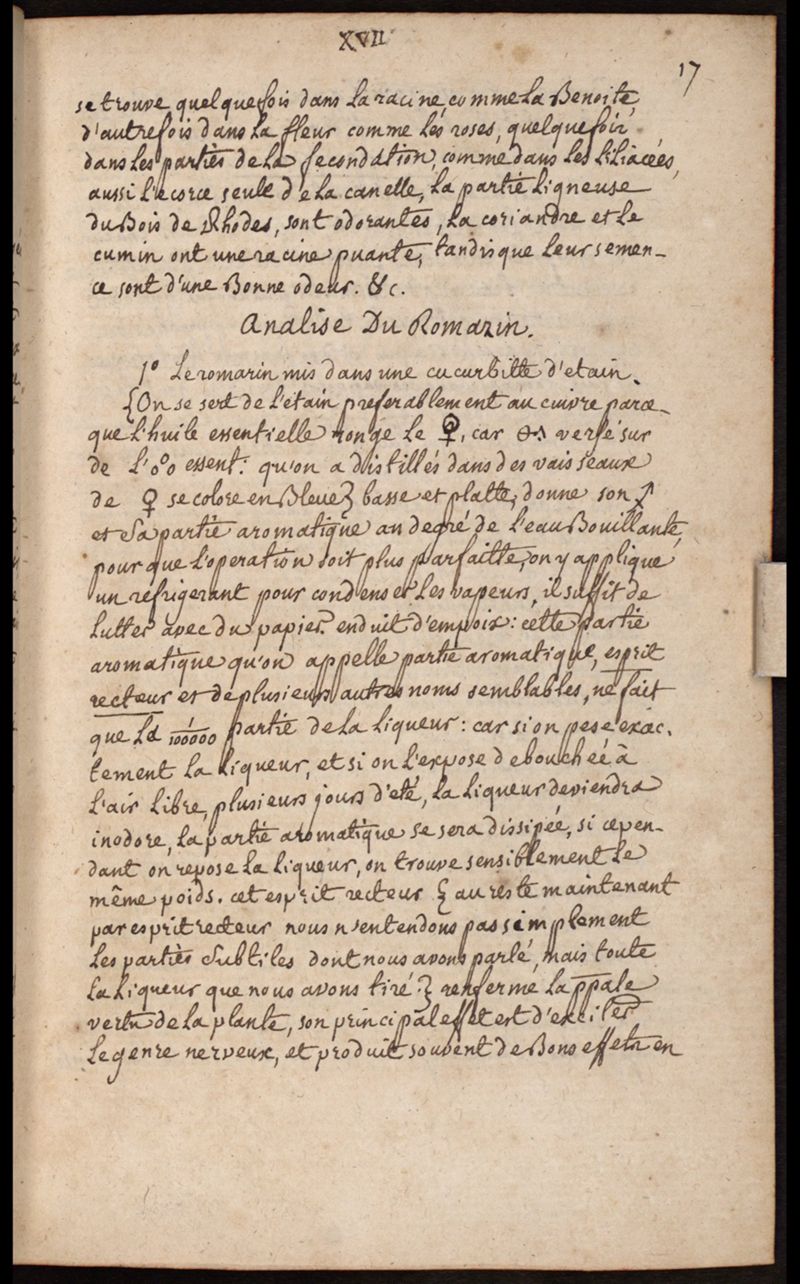 XVII
17
se trouve quelquefois dans la racine, comme la Benoite,
d'autrefois dans la fleur comme les roses, quelquefois
dans les parties de la fecondation, comme dans les Liliacées,
aussi l'ecorce seule de la canelle, la partie Ligneuse
du Bois de Rhodes, sont odorantes, la coriandre et le
cumin ont une racine puante, tandisque leur semen-
ce sont d'une Bonne odeur. &c.
Analise Du Romarin.
1° Le romarin mis dans une cucurbitte d'etain.
{On se sert de l'etain preferablement au cuivre parce-
que l'huile essentielle ronge le ♀, car versé sur
de l'o°o essent: qu'on a distillés dans des vaisseaux
de ♀ se colore en Bleue} basse et platte, donne son
et sa partie aromatique au degré de l'eau Bouillante,
pour que l'operation soit plus parfaitte, on y applique
un refrigerant pour condenser les vapeurs, il suffit de
lutter avec du papier enduit d'empois: cette partie
aromatique qu'on appelle partie aromatique, esprit
recteur et de plusieurs autres noms semblables, ne fait
que la 1/100000 partie de la liqueur: car si on pese exac-
tement la liqueur, et si on l'expose debouchée à
l'air libre, plusieurs jours d'eté, la liqueur deviendra
inodore, la partie aromatique se sera dissipée, si cepen-
dant on repese la liqueur, on trouve sensiblement le
même poids. cet esprit recteur { au reste maintenant
par esprit recteur nous n'entendons pas simplement
les parties subtiles dont nous avons parlé, mais toute
la liqueur que nous avons tiré } renferme la ppale
vertu de la plante, son principal effet est d'exciter
le genre nerveux, et produit souvent de Bons effets en